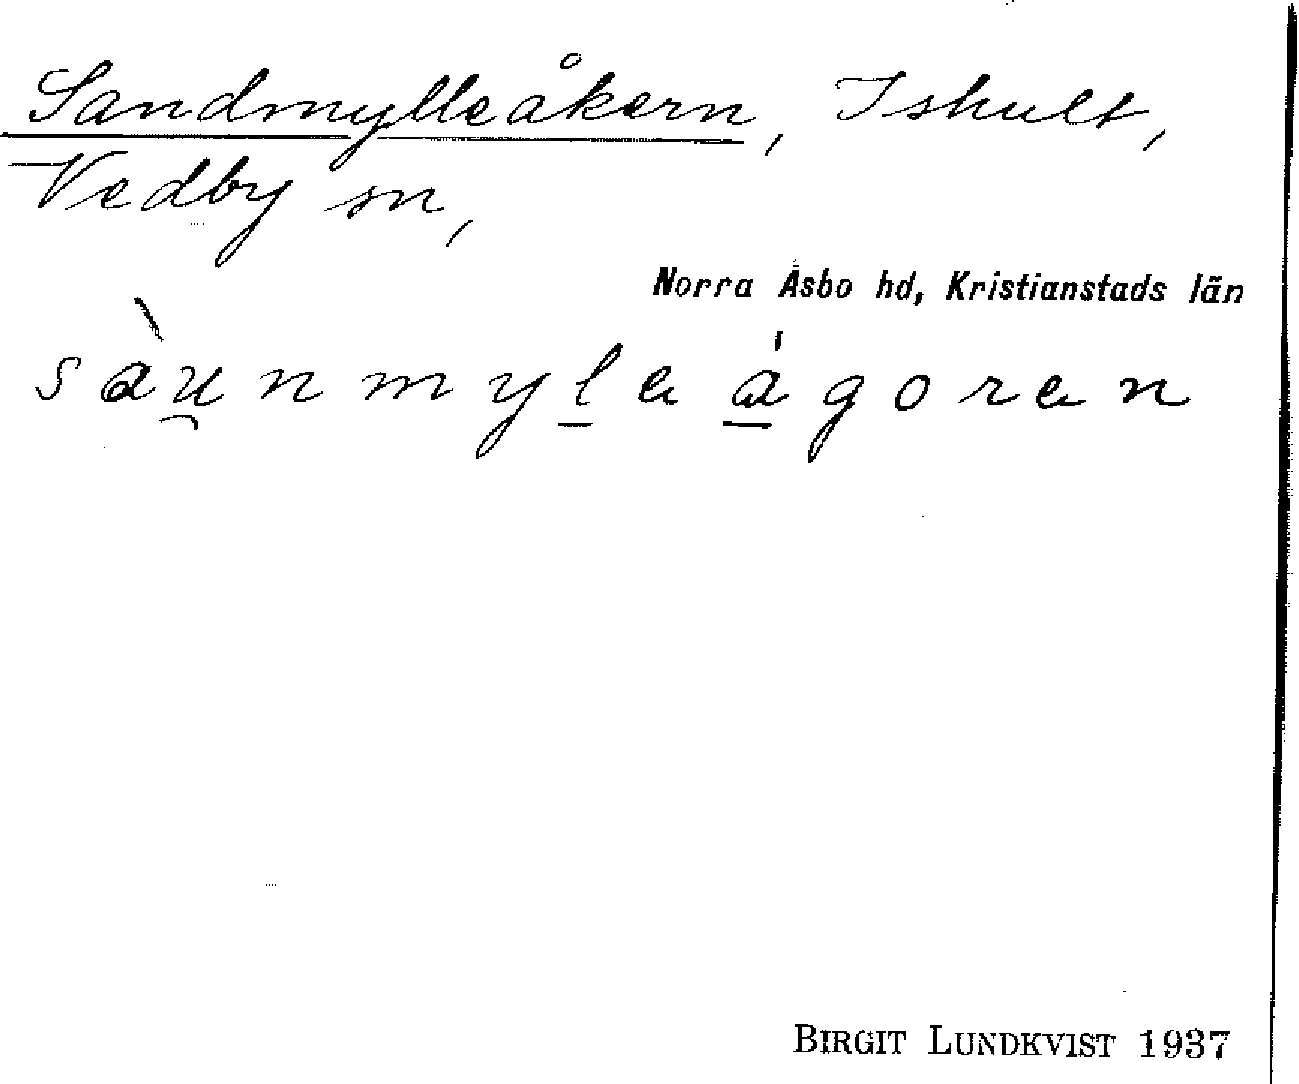 Sandmylleåkern, Ishult,
Vedby sn,
Norra Åsbo hd, Kristianstads län
sàu̯nmyl̠ea̠̍goren
BIRGIT LUNDKVIST 1937